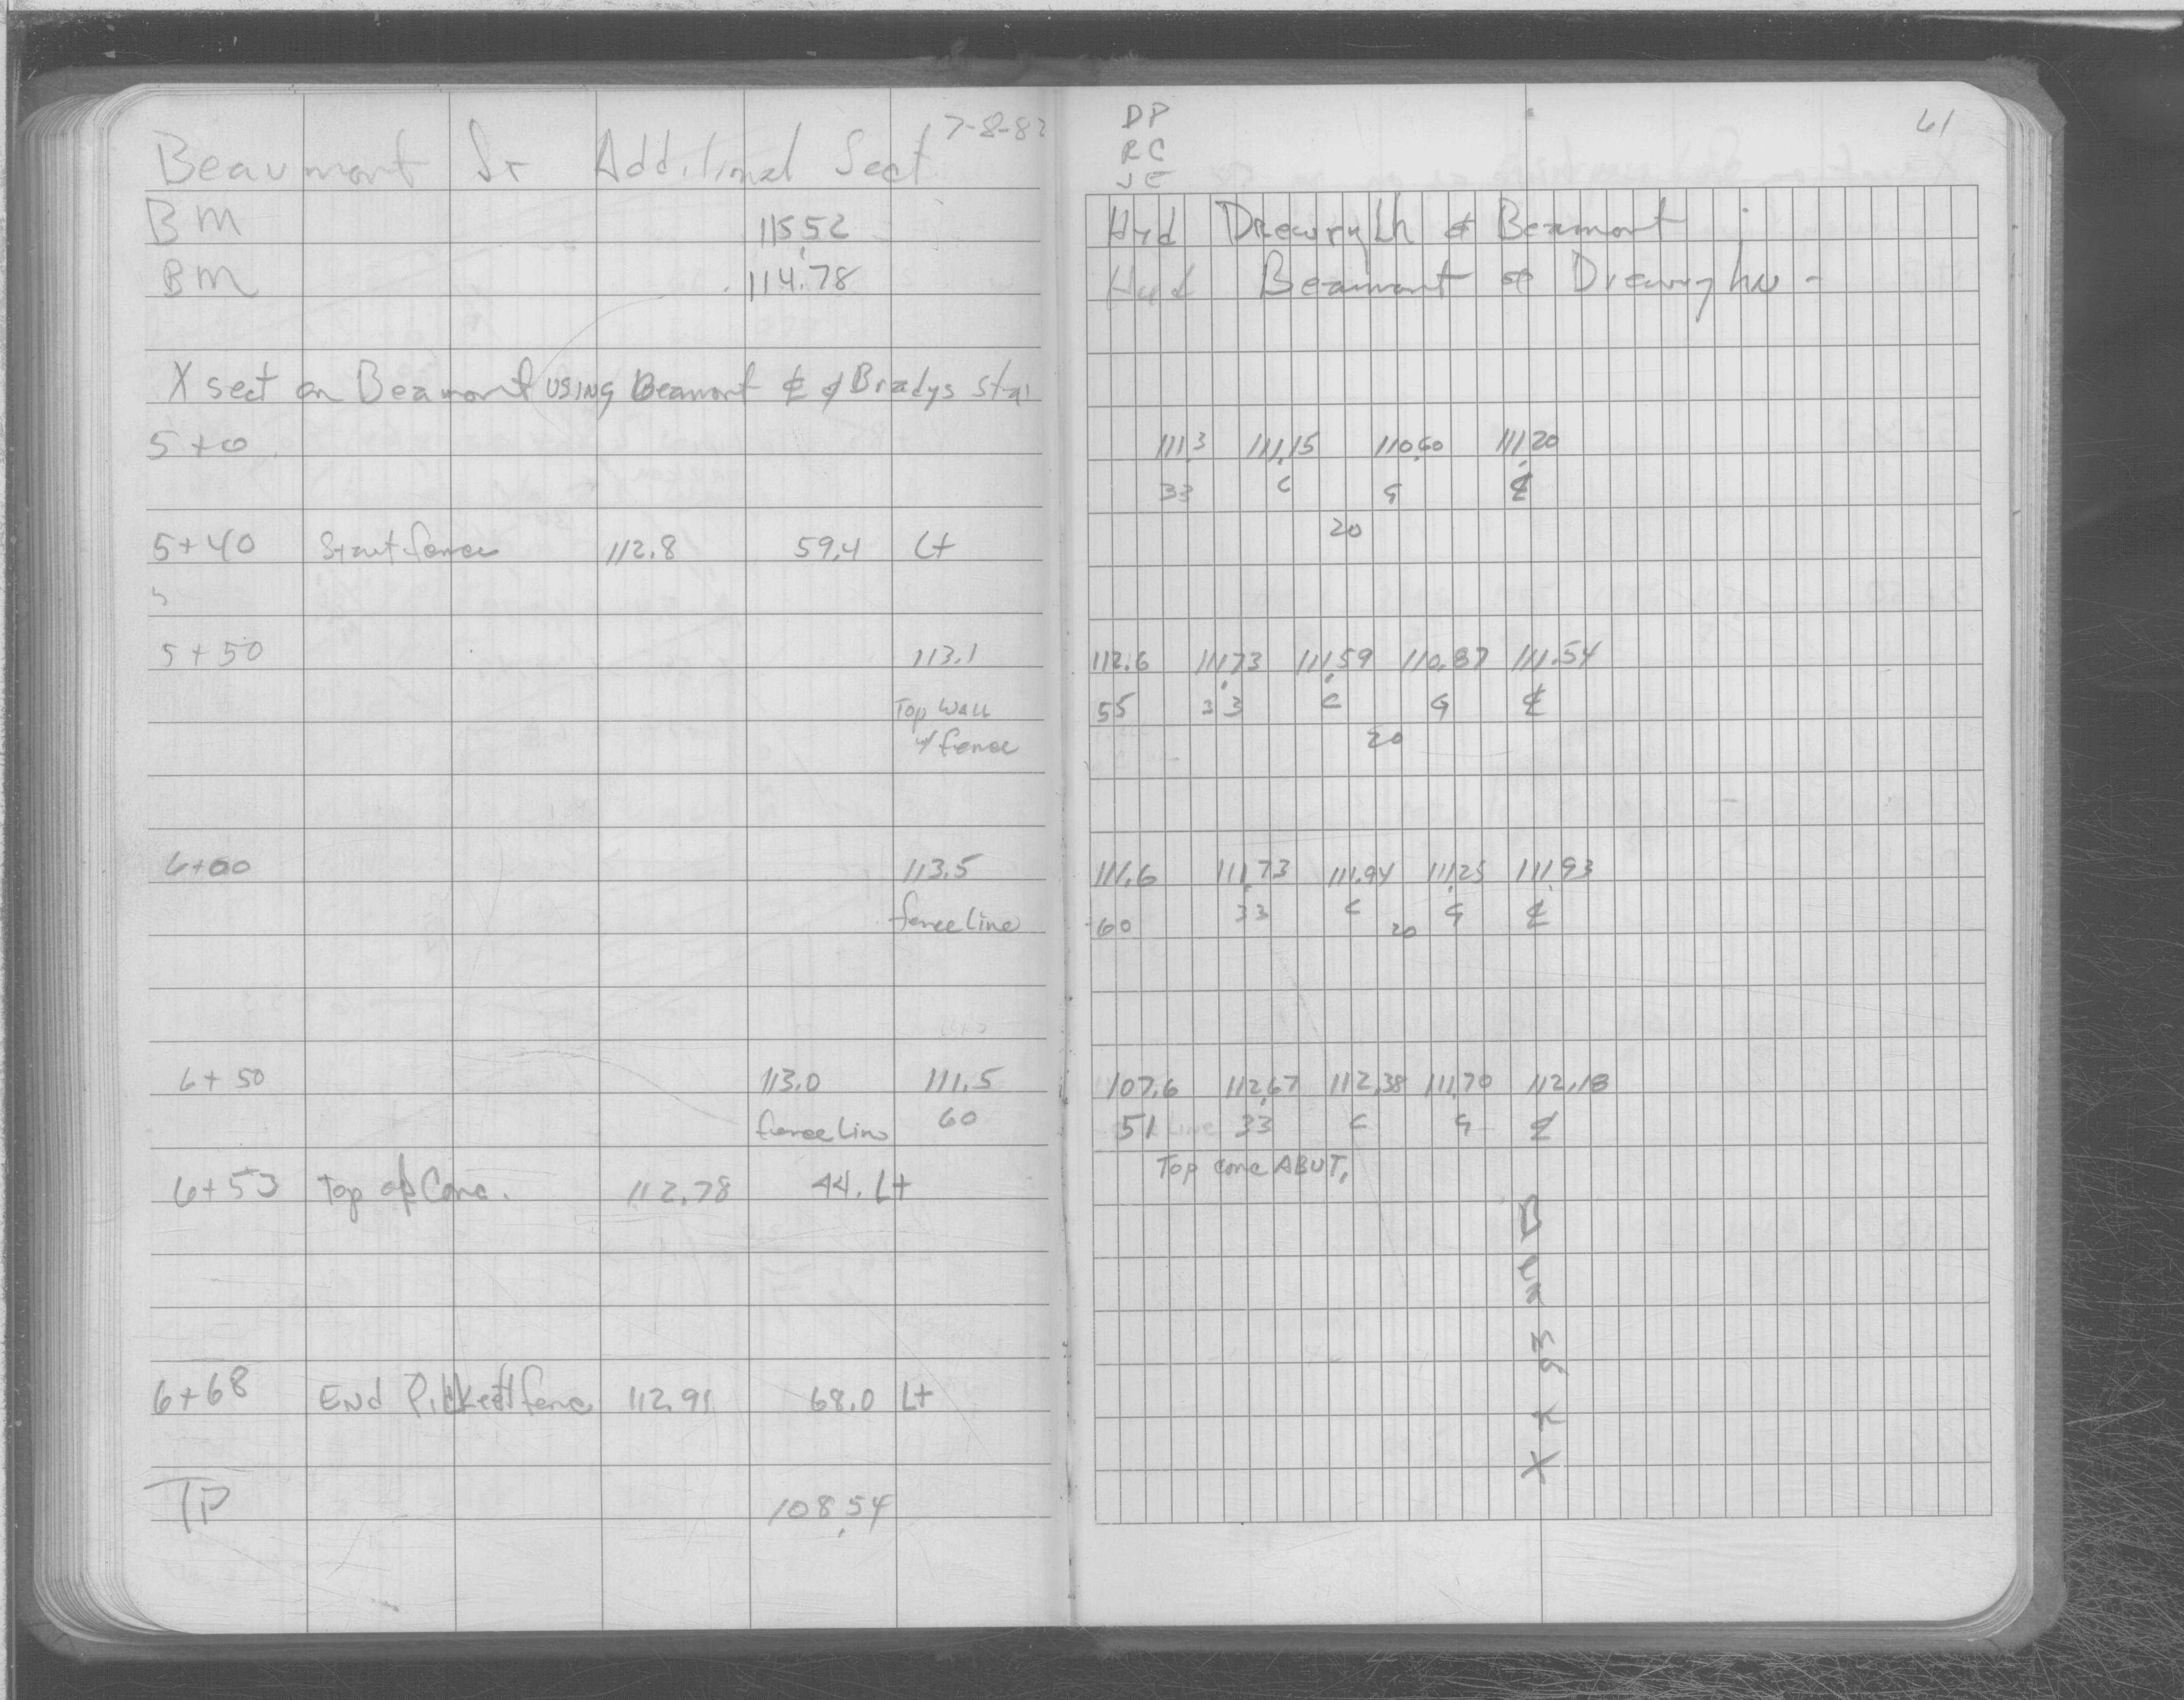 7-8-82
Beaumont St Additional Sect
BM 115.52
BM 114.78
X sect on Beamont USING Beamont ℄ & Bradys Sta.
5+0
5+40 Start fence 112.8 59.4 Lt
5+50 113.1
Top Wall
w/ fence
6+00 113.5
fence line
6+50 113.0 111.5
fence Line 60
6+53 Top of Conc. 112.78 44. Lt
6+68 End Picket fence 112.91 68.0 Lt
TP 108.54
DP
RC
JE
61
Hyd Drewry Ln & Beamont
Hyd Beamont & Drewry
111.3 111.15 110.60 111.20
33 C G ℄
20
112.6 111.73 111.59 110.87 111.54
55 33 C G ℄
20
111.6 111.73 111.94 111.25 111.93
60 33 C G ℄
20
107.6 112.67 112.38 111.70 112.18
51 33 C G ℄
Top conc ABUT.